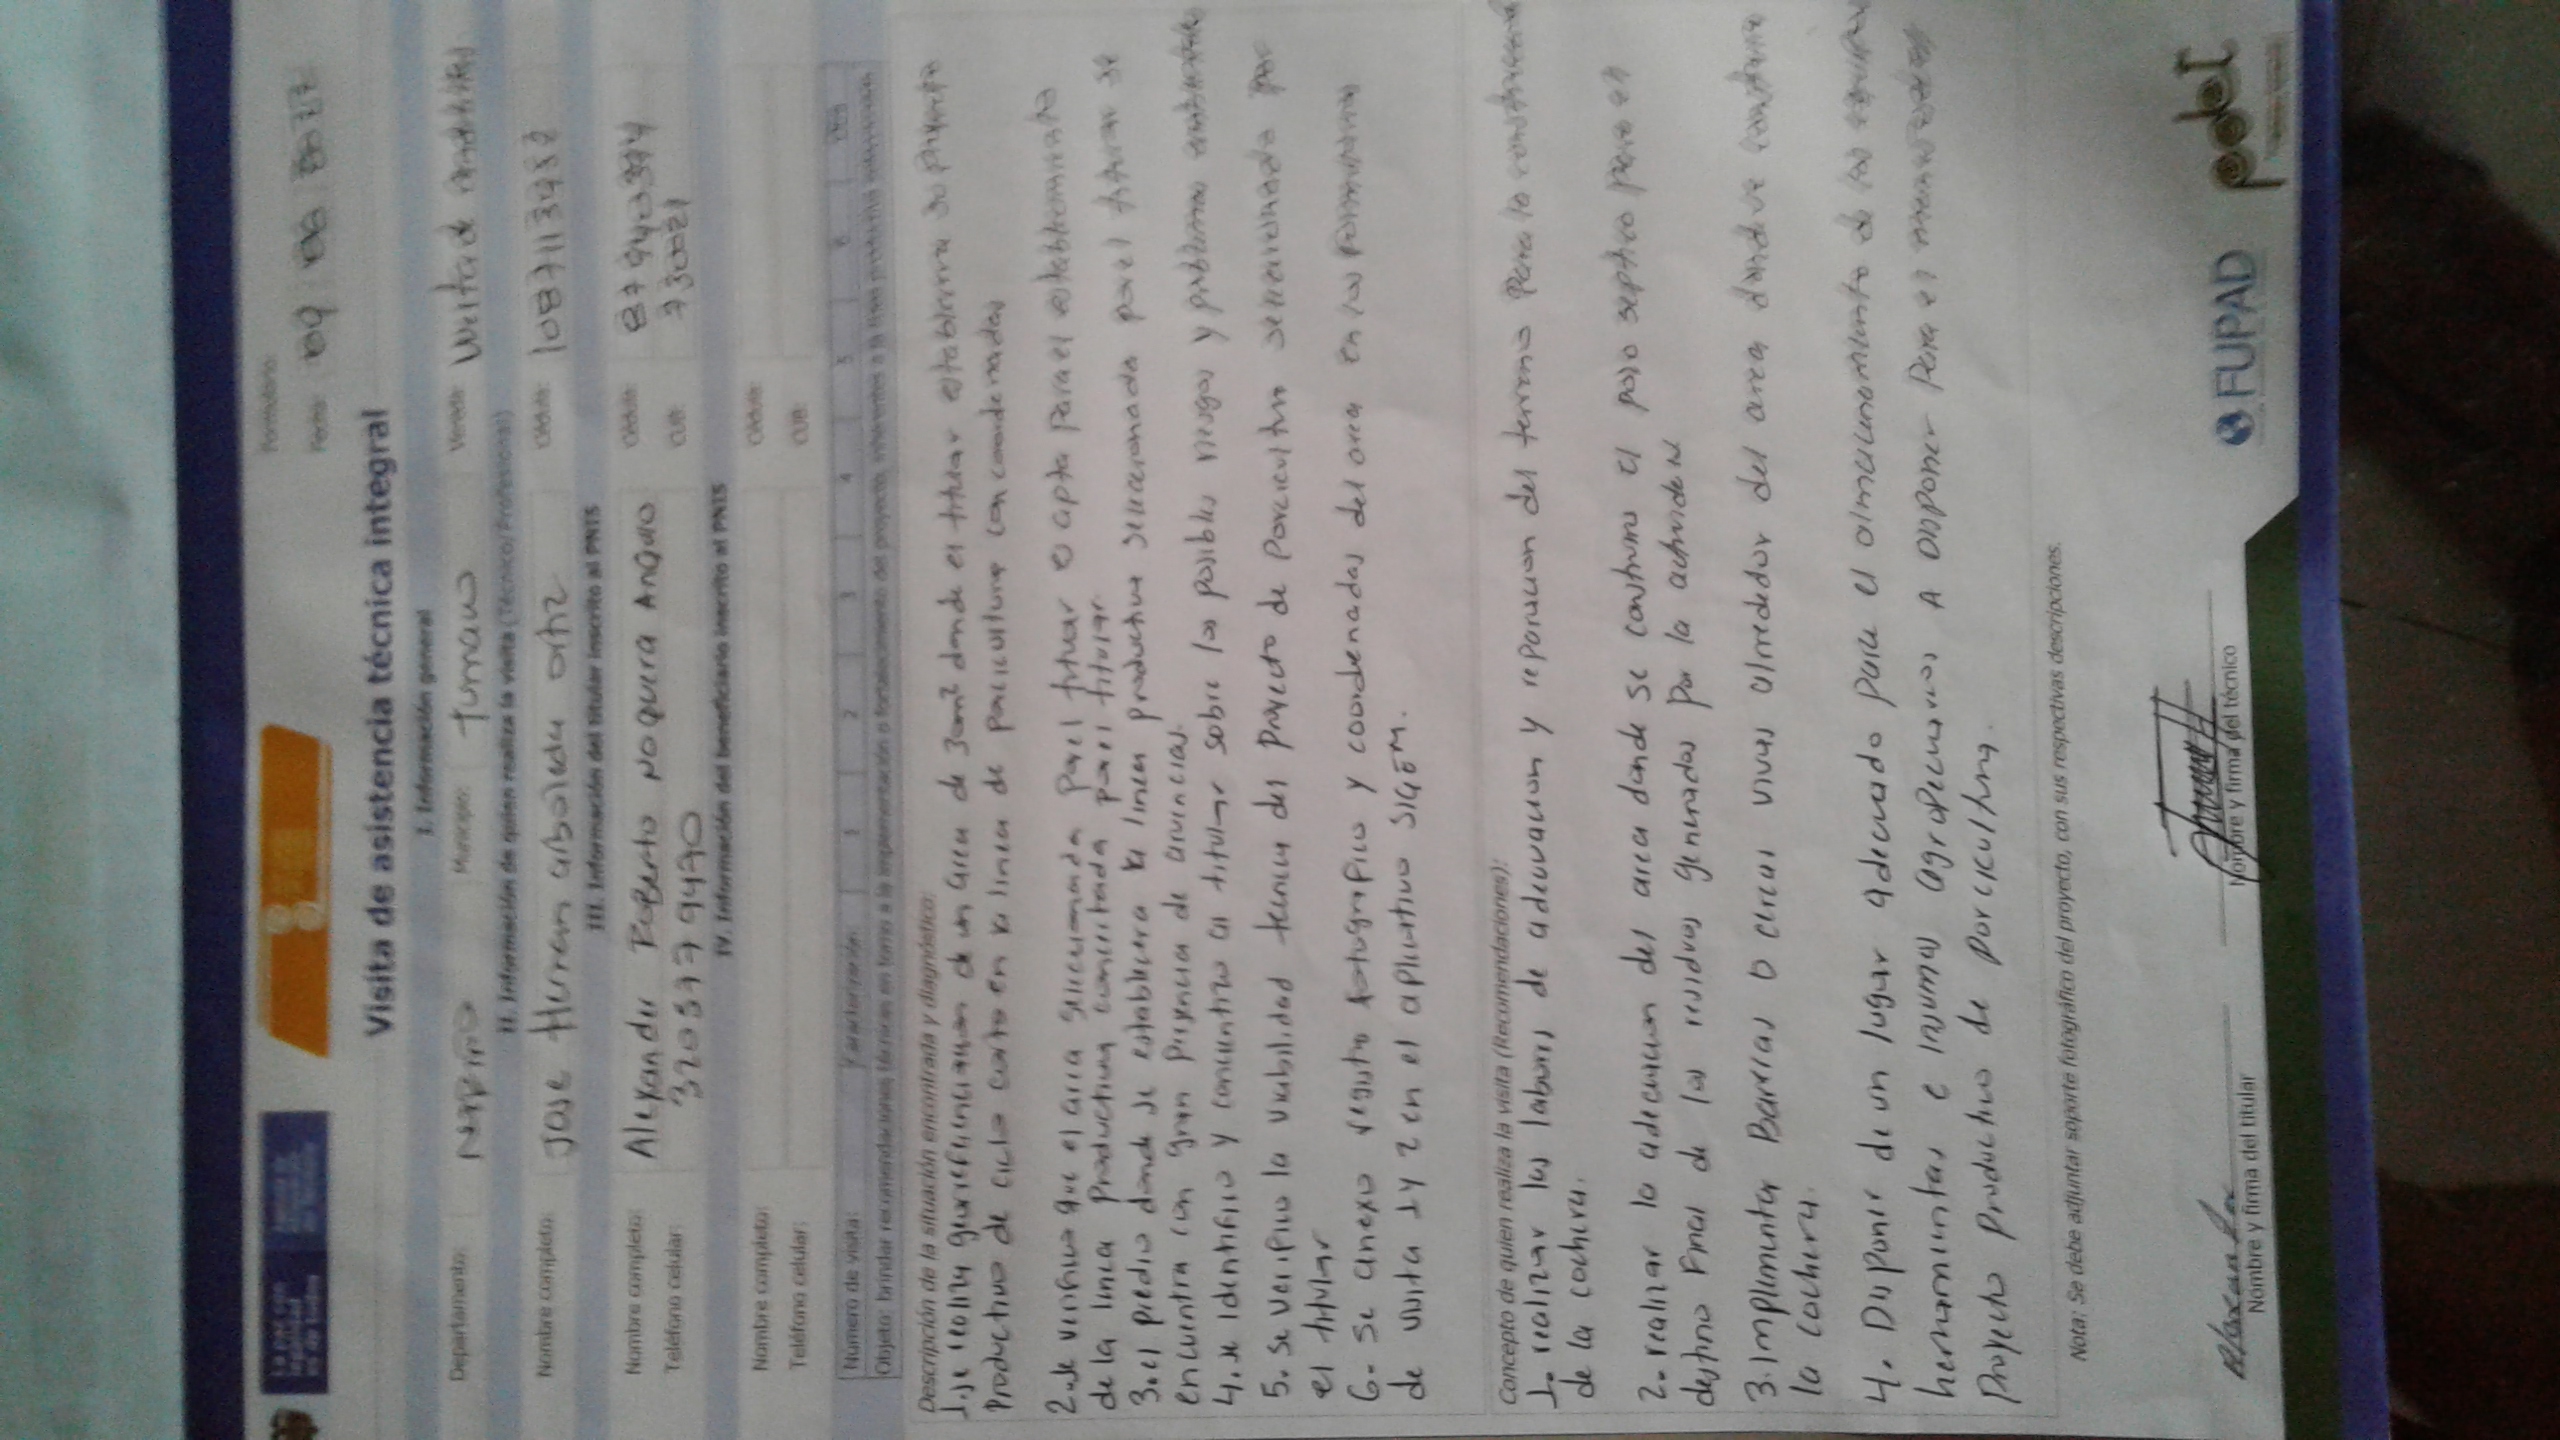 Formulario:
Fecha: 09 08
Visita de asistencia técnica integral
I. Información general
Departamento: Nariño Municipio: Tumaco Vereda:
II. Información de quien realiza la visita (Técnico/Profesional)
Nombre completo: Jose Hernan arboleda ortiz Cédula: 1087113482
III. Información del titular inscrito al PNIS
Nombre completo: Alexander Roberto Noquera Angulo Cédula: 87940374
Teléfono celular: 3205779470 CUB: 730021
IV. Información del beneficiario inscrito al PNIS
Nombre completo: Cédula:
Teléfono celular: CUB:
Número de visita: 1 2 3 4 5 6
Objeto: brindar recomendaciones técnicas en torno a la implementación o fortalecimiento del proyecto,
Descripción de la situación encontrada y diagnóstico:
1. se realizo georeferenciacion de un area de donde el titular establecera su proyecto
Productivo de ciclo corto en la linea de porcicultura con coordenadas
2. se verifico que el area seleccionada por el titular es apta para el establecimiento
de la linea Productiva concertada por el titular.
3. el predio donde se establecera la linea productiva seleccionada por el titular se
encuentra con gran presencia de arvencias.
4. se identifico y concientizo al titular sobre los posibles riesgos y problemas ambientales
5. se verifico la viabilidad tecnica del proyecto de Porcicultura seleccionado por
el titular
6. se anexo registro fotografico y coordenadas del area en los formularios
de visita 1 y 2 en el aplicativo SIGEM.
Concepto de quien realiza la visita (Recomendaciones):
1. realizar las labores de adecuacion y reparacion del terreno Para la construccion
de la cochera.
2. realizar la adecuacion del area donde se construira el poso septico para el
destino Final de los residuos generados por la actividad
3. Implementar Barreras o cercas vivas alrrededor del area donde se construira
la cochera.
4. Disponer de un lugar adecuado para el almacenamiento de los
herramientas e insumos agropecuarios A Disponer Para el
Proyecto Productivo de porcicultura.
Nota: Se debe adjuntar soporte fotográfico del proyecto, con sus respectivas descripciones.
Nombre y firma del titular Nombre y firma del técnico
FUPAD pdet